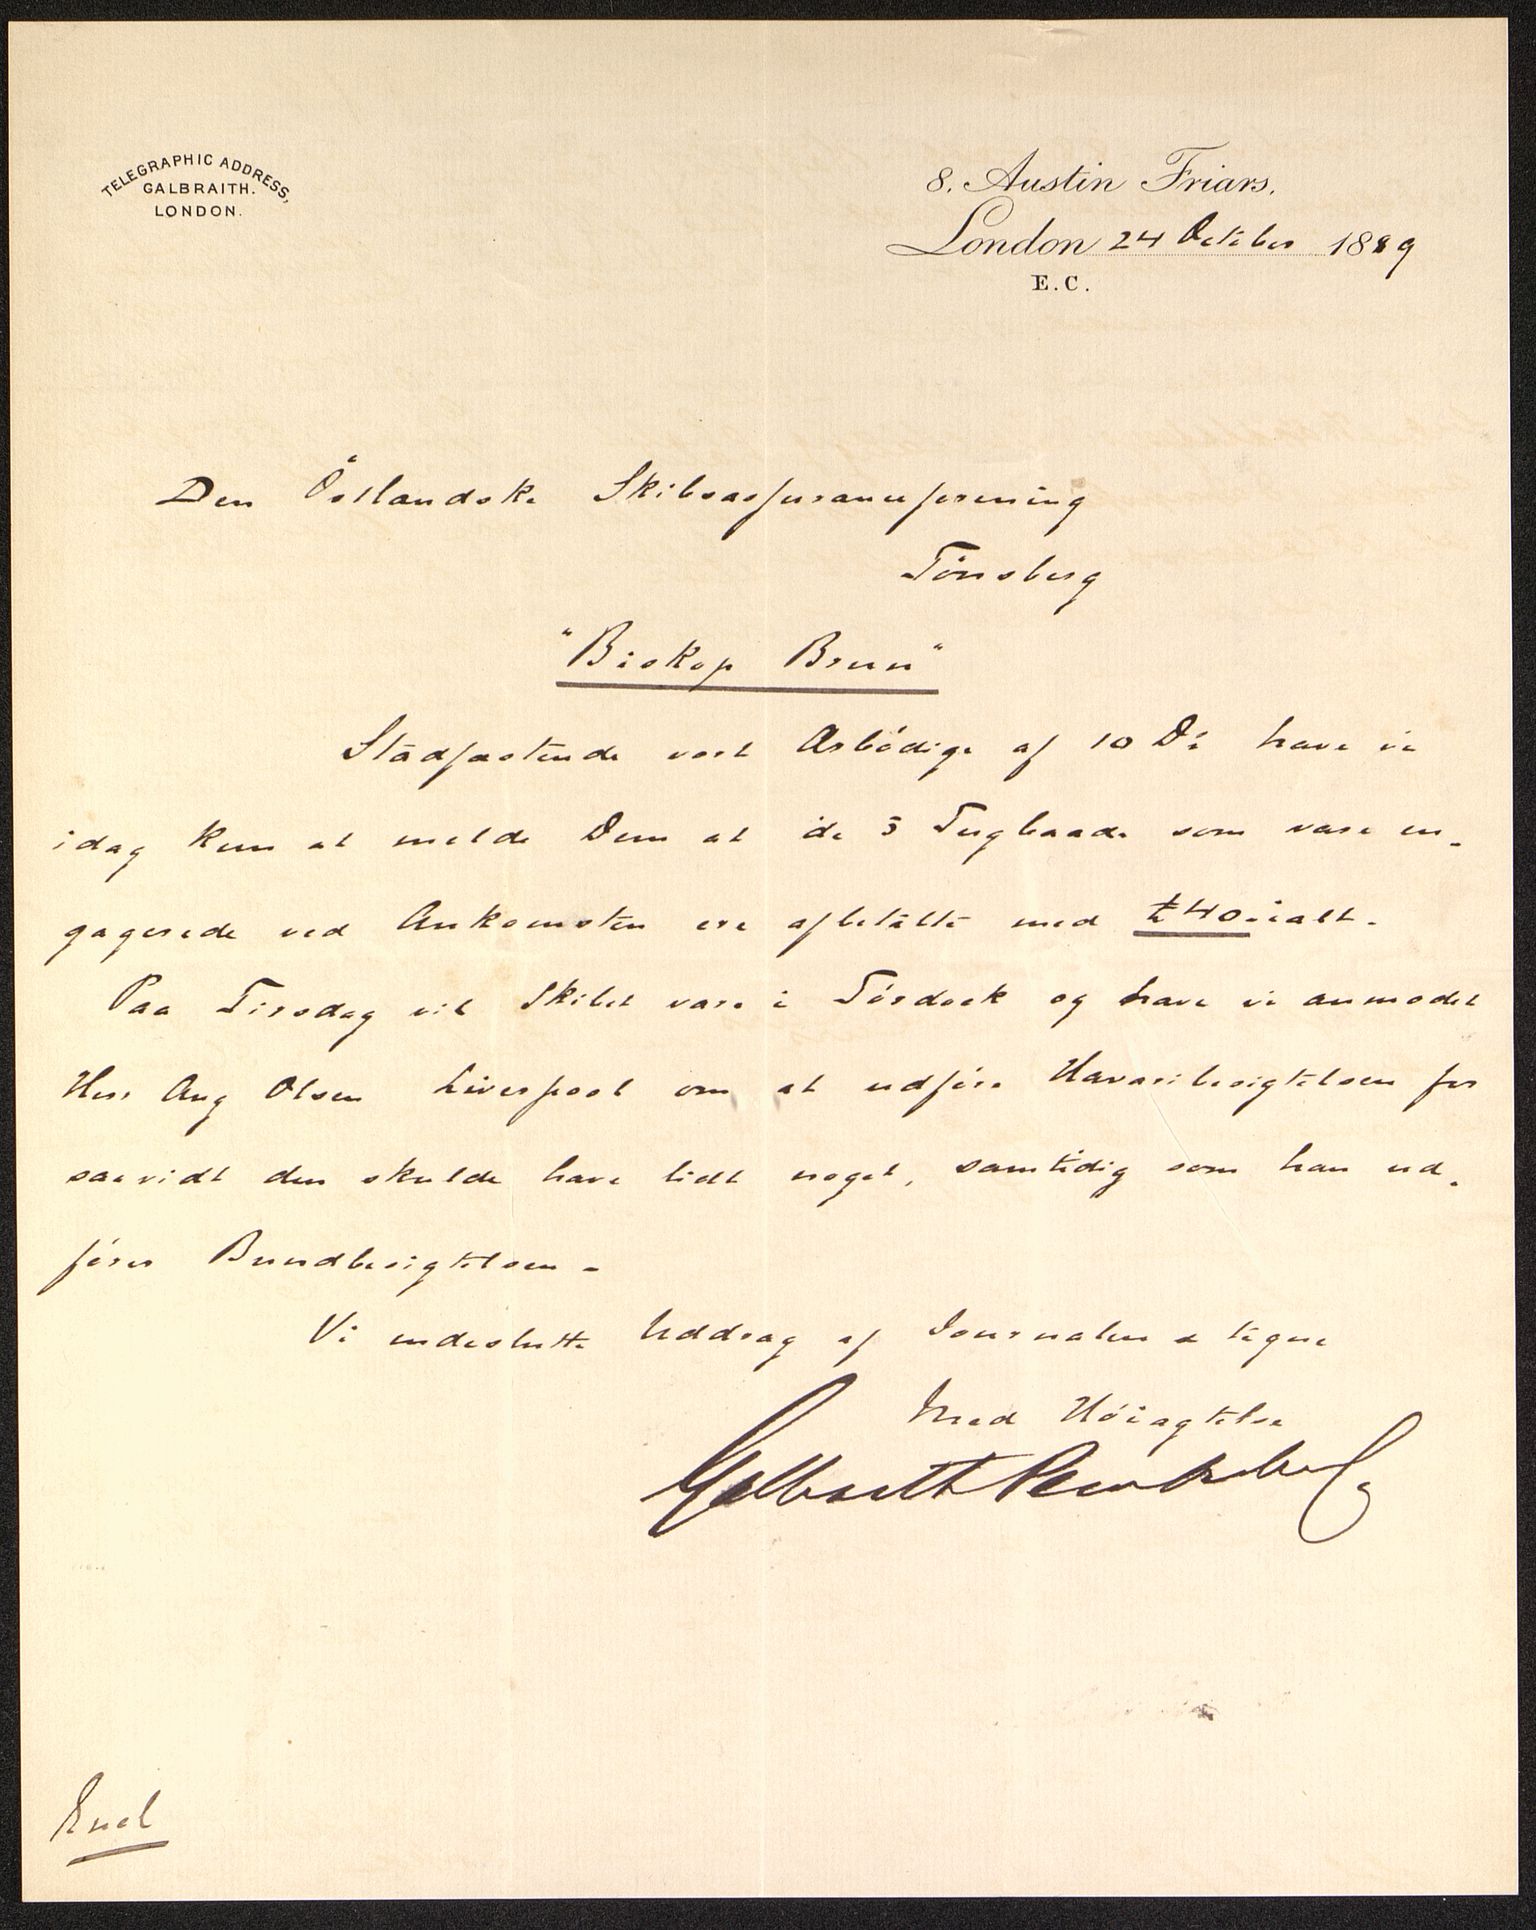 TELEGRAPHIC ADDRESS,
GALBRAITH.
LONDON.
8. Austin Friars,
London 24 October 1889
E.C.
Den Östlandske Skibsassuranceforening
Tönsberg
"Biskop Brun"
Stadfæstende vort Ærbödige af 10 Ds have vi
idag kun at melde Dem at de 3 Tugbaade som vare en-
gagerede ved Ankomsten ere afbetalte med £40 ialt.
Paa Tirsdag vil Skibet være i Tördock og have vi anmodet
Herr Aug Olsen Liverpool om at udföre Havaribesigtelsen for
saavidt den skulde have lidt noget, samtidig som han ud-
förer Bundbesigtelsen -
Vi indeslutte Uddrag af Journalen & tegne
Med Höiagtelse
Galbraith Pembroke & Co
Encl